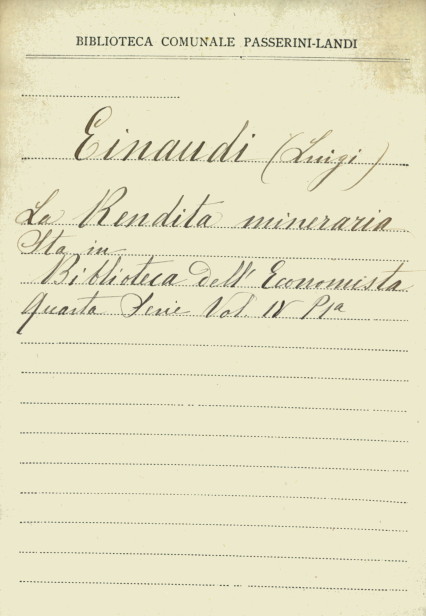 BIBLIOTECA COMUNALE PASSERINI-LANDI
Einaudi (Luigi)
La Rendita mineraria
Sta in
Biblioteca dell'Economista
Quarta Serie Vol. IV P1a